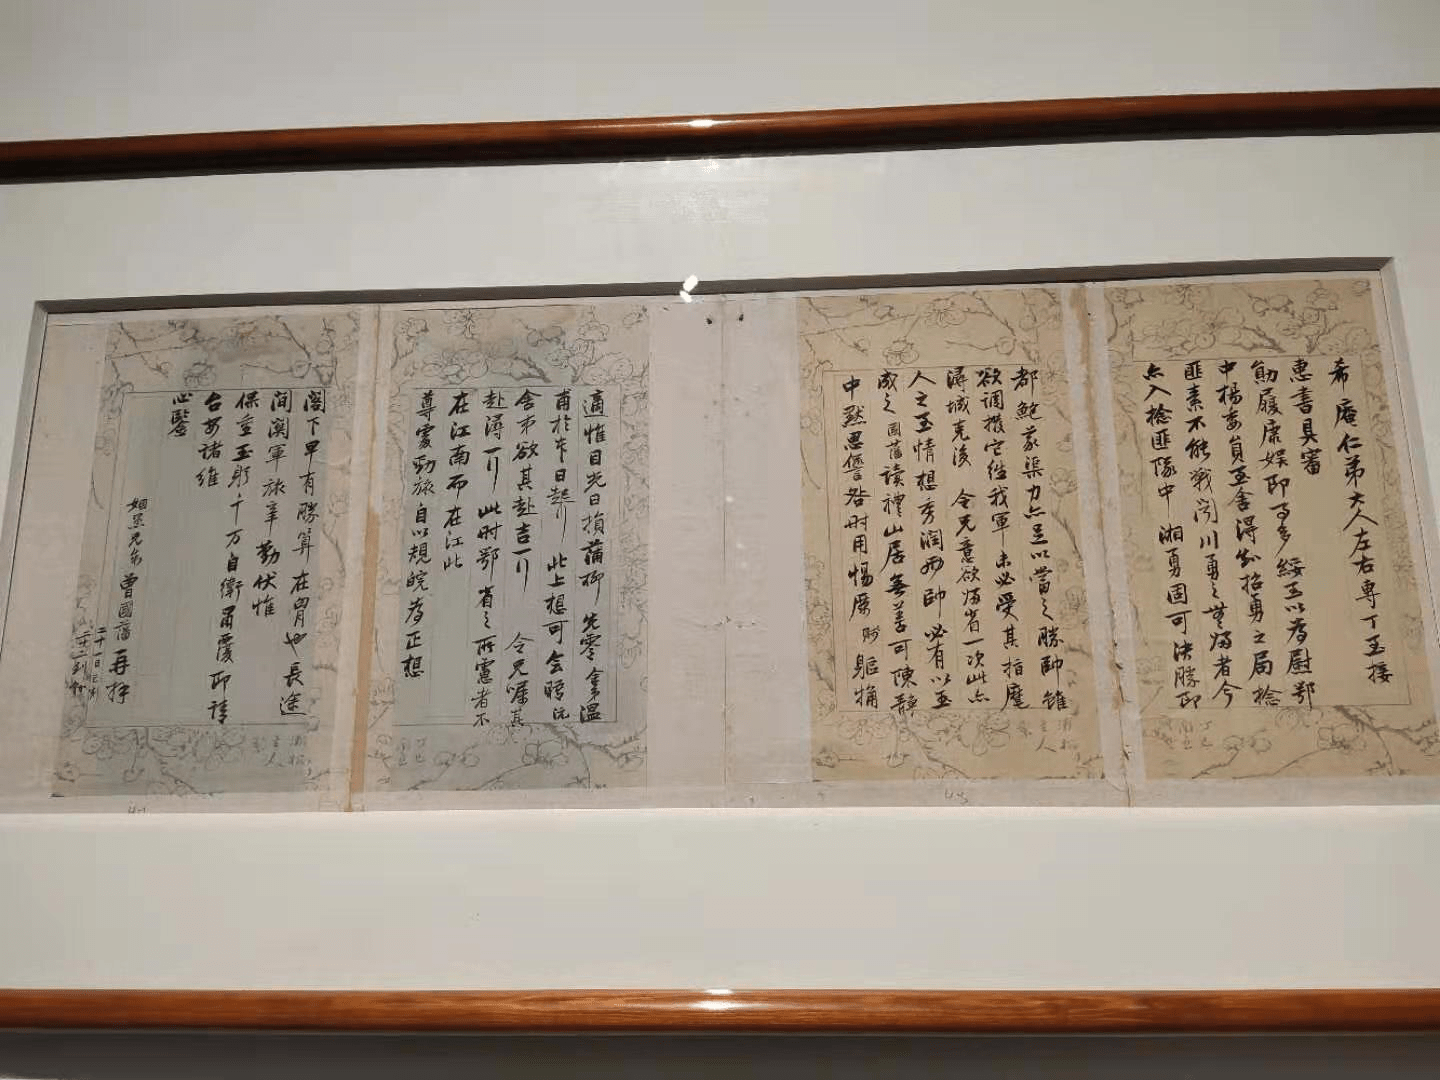 希庵仁弟大人左右專丁至接
惠書具審
勛履康娛即事多綏至以為慰鄂
中楊委員至舍得知招勇之局捻
匪素不能戰鬥川勇之無歸者今
亦入捻匪隊中湘勇固可決勝即
都鮑蔣渠力亦足以當之勝帥雖
欲調撥它往我軍未必受其指麾
潯城克後 令兄意欲歸省一次此亦
人之至情想秀潤兩帥必有以玉
成之國藩讀禮山居無善可陳靜
中默思愆咎時用惕厲 賤軀
適惟目光日損蒲柳先零舍溫
甫於 日起行此上想可會晤沅
舍弟欲其赴吉一行 令兄囑其
赴潯一行此時鄂省之所慮者不
在江南而在江北
尊處勁旅自以規皖為正想
閣下早有勝算在胃也長途
間關軍旅辛勤伏惟
保重玉躬千萬自衛肅覆即請
台安諸維
心鑒
姻愚兄弟曾國藩再拜
二十一日巳刻